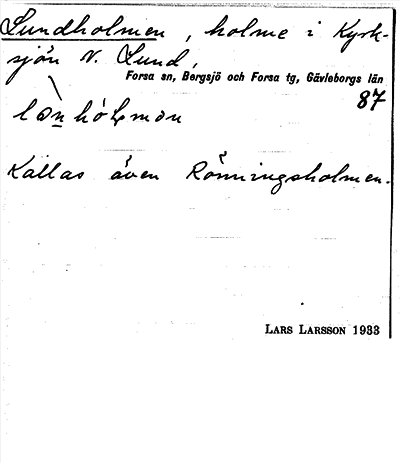 Lundholmen, holme i Kyrk-
sjön N. Lund,
Forsa sn, Bergsjö och Forsa tg, Gävleborgs län
87
Kallas även Rönningsholmen.
LARS LARSSON 1933